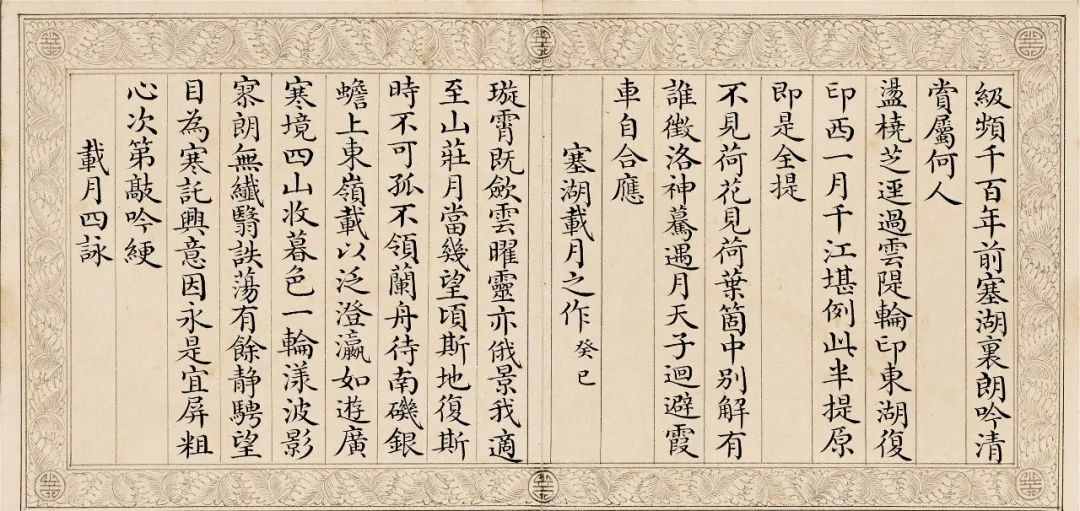 級頻千百年前塞湖裏朗吟清
賞屬何人
盪橈芝逕過雲隄輪印東湖復
印西一月千江堪例此半提原
即是全提
不見荷花見荷葉箇中別解有
誰徵洛神驀遇月天子迴避霞
車自合應
塞湖載月之作癸巳
璇霄既歛雲曜靈亦俄景我適
至山莊月當幾望頃斯地復斯
時不可孤不領蘭舟待南磯銀
蟾上東嶺載以泛澄瀛如遊廣
寒境四山收暮色一輪漾波影
寥朗無纖翳詄蕩有餘静騁望
目為寒託興意因永是宜屏粗
心次第敲吟綆
載月四詠